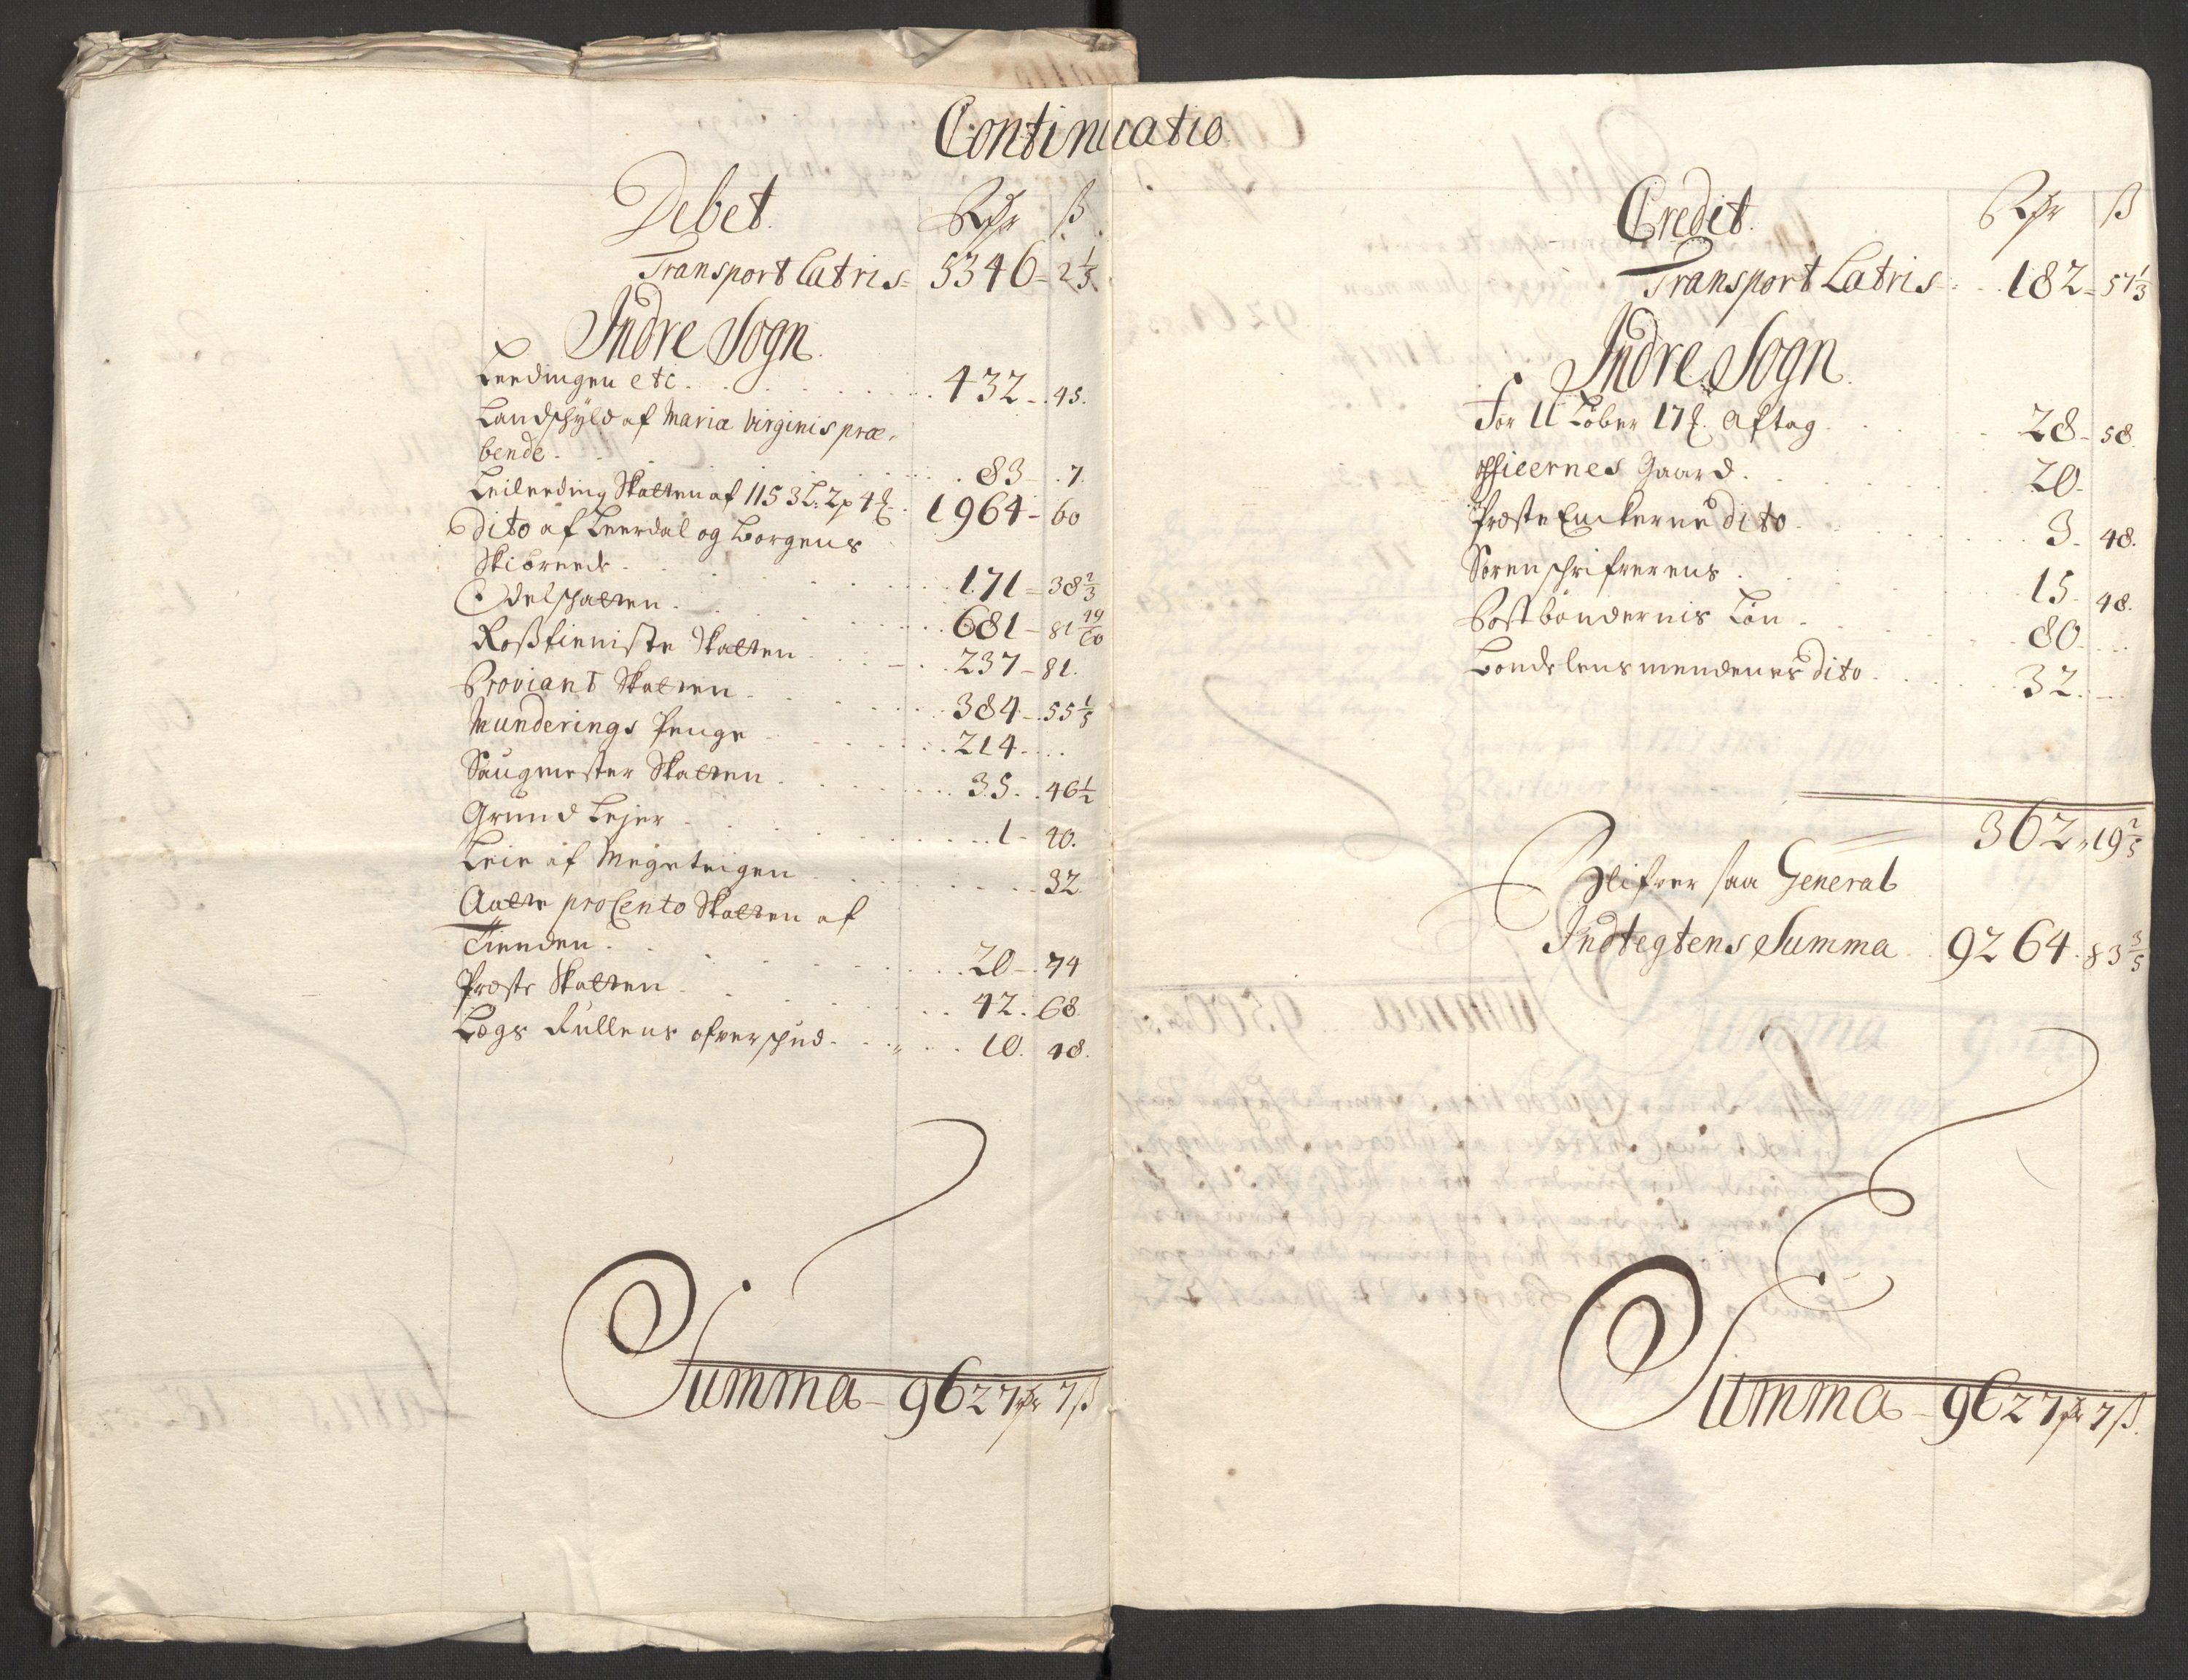 Continuatio
Debet. Rdr ß
Transport Latris 5346 - 2 1/5.
Indre Sogn.
Leedingen etc. 432 - 45.
Landschyld af Mariæ Virginis præ-
bende. 83 - 7.
Leilending Skatten af 1153 L. 2 p 4 1964 - 60
Dito af Leerdal og Borgens
Skibrede. 171 - 38 2/3
Odelschatten. 681 - 81 49/60
Roßtieniste Skatten 237 - 81.
Proviant Skatten 384 - 55 1/5
Munderings Penge 214
Saugmester Skatten. 35. 46 1/2
Grund Lejer 1 - 40.
Leie af 32
Aatte pro Cento Skatten af
Tienden. 20 - 74
Præste Skatten 42. 68
Lægs Rullens ofverschud. 10. 48.
Summa - 9627 rdr 7 ß
Credit. Rdr ß
Transport Latris 182 - 57 1/3
Indre Sogn.
For 11 Løber 17 Aftag 28 - 58.
Gaard. 20.
Præste Enkerne dito. 3. 48.
Sorenschrifverens 15. 48.
Postbøndernis Løn 80
Bonde lensmendenes dito. 32.
362 - 19 2/5
Blifver saa General
Indtegtens Summa 9264. 83 3/5
Summa - 9627 rdr 7 ß.